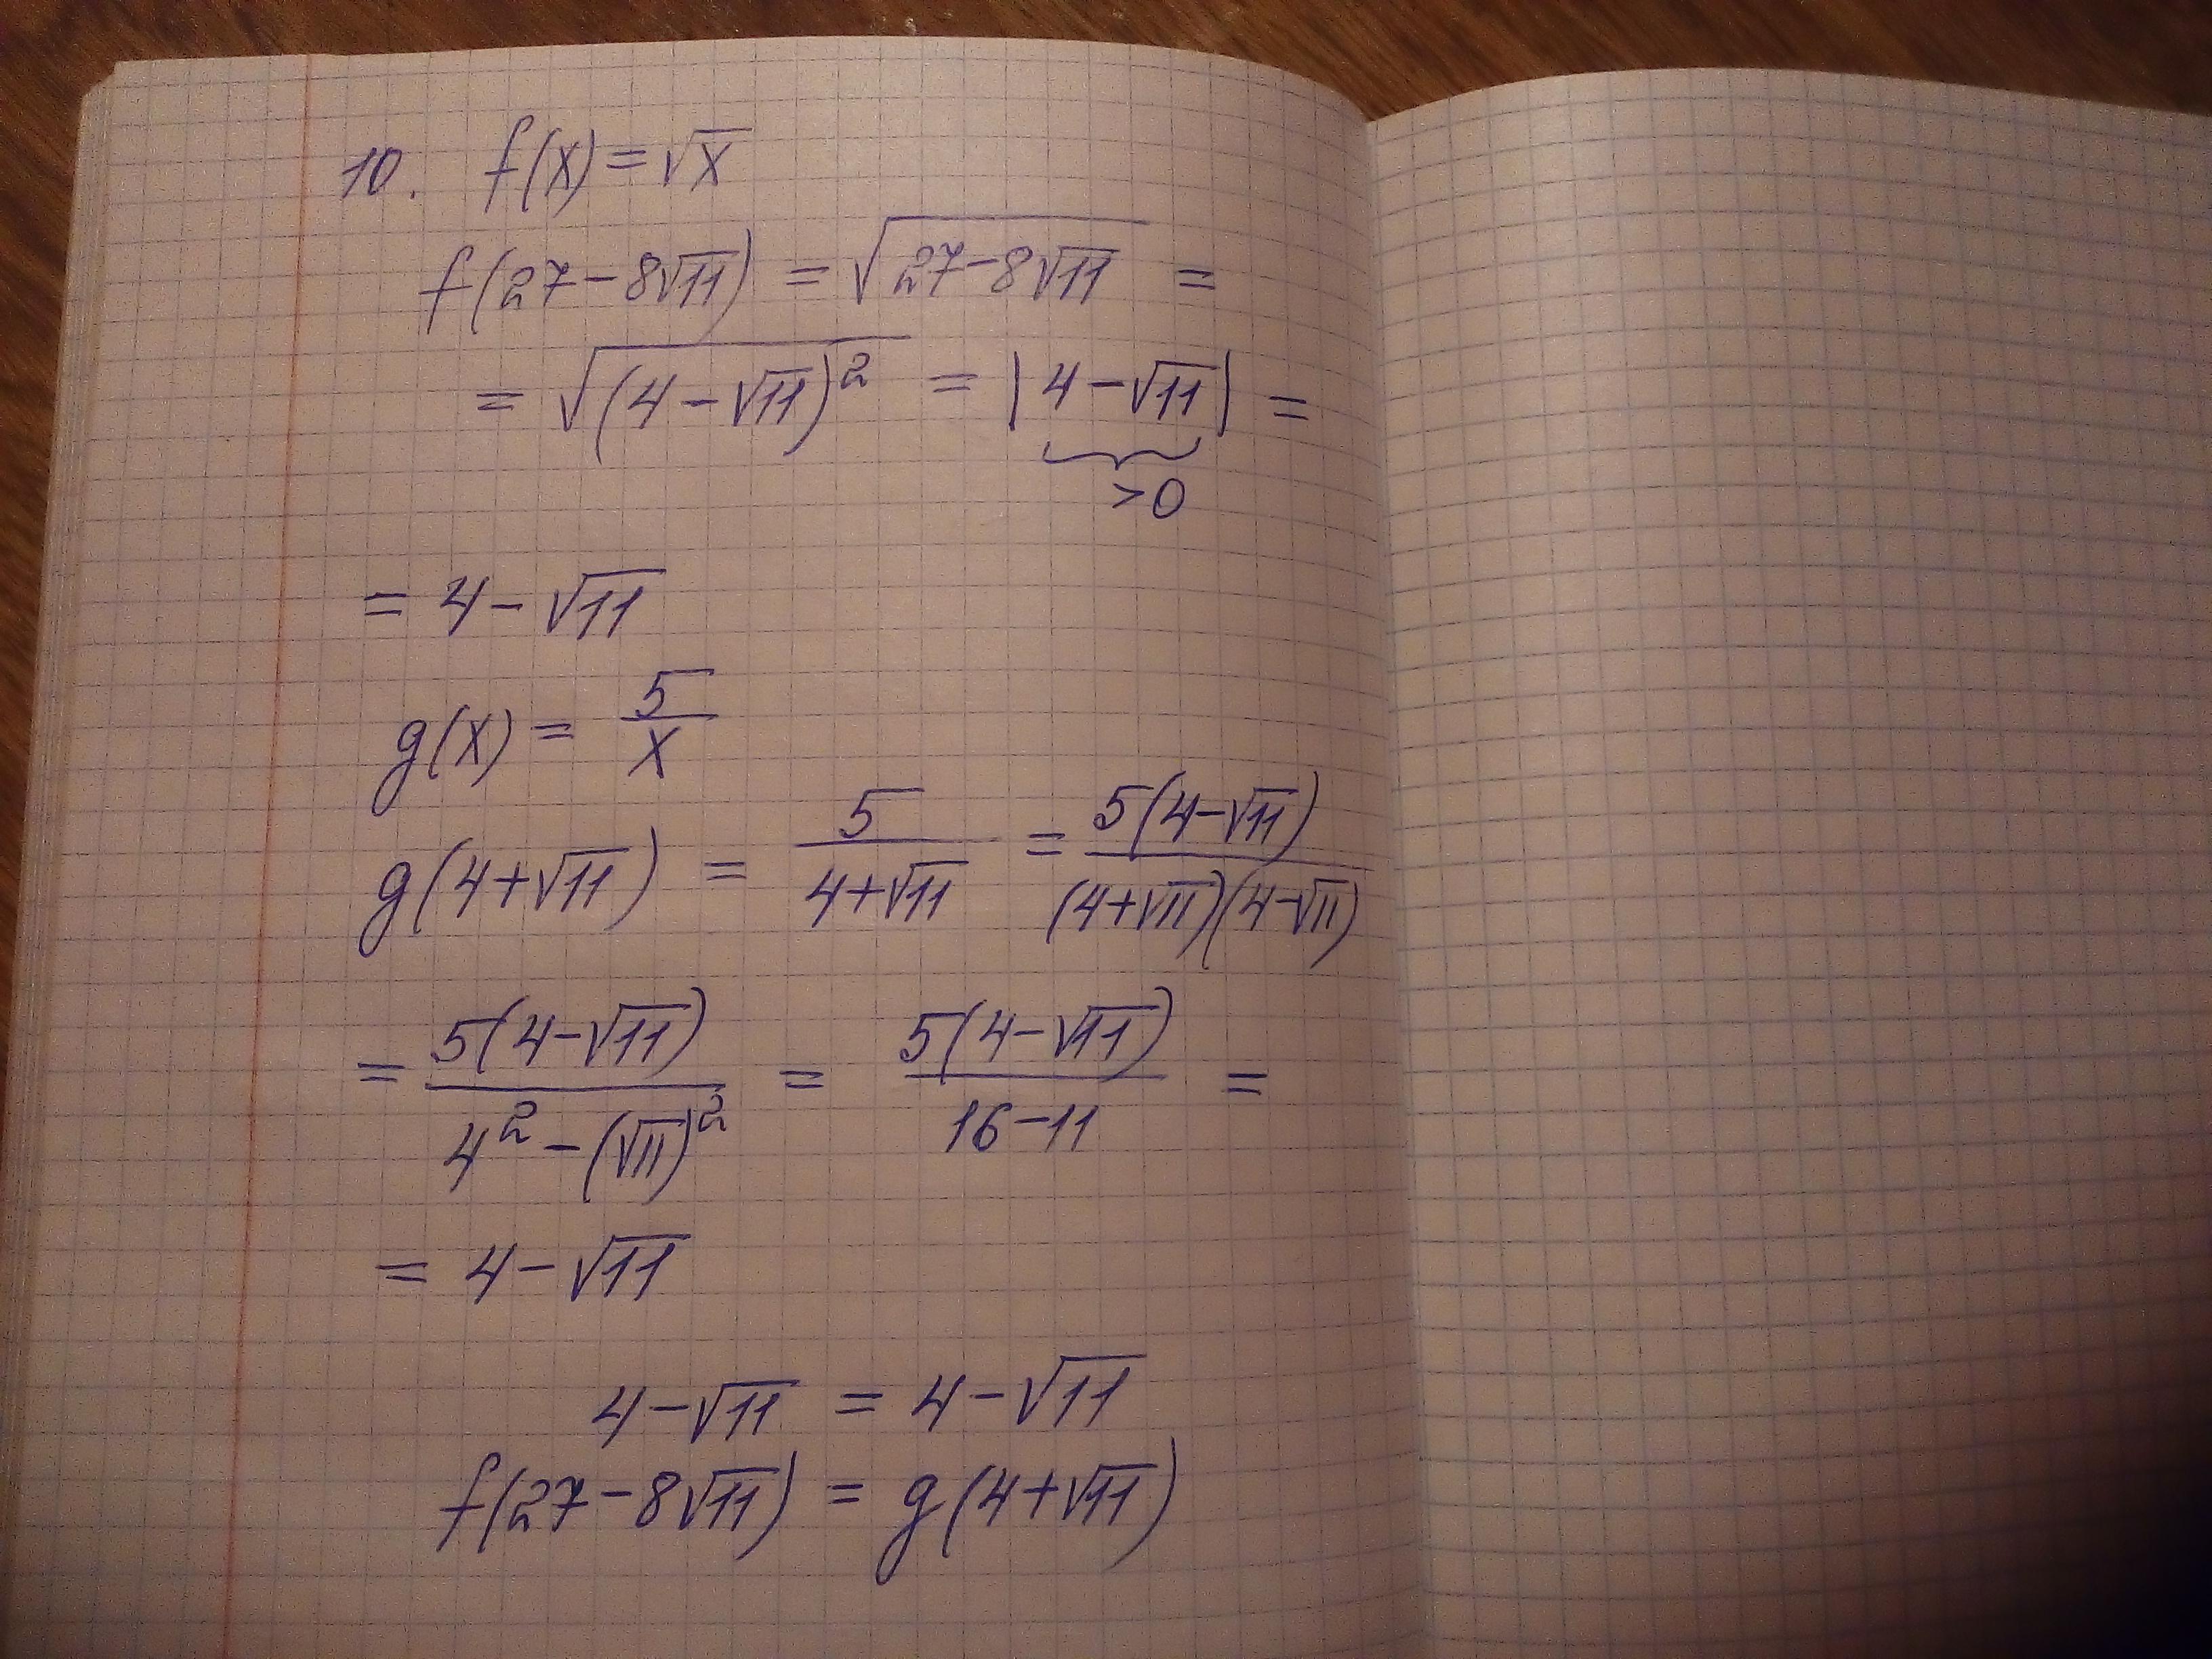 10. f(x) = √x
f(27 - 8√11) = √(27 - 8√11) =
= √((4 - √11)²) = |4 - √11| =
>0
= 4 - √11
g(x) = 5/x
g(4 + √11) = 5/(4 + √11) = 5(4 - √11)/((4 + √11)(4 - √11))
= 5(4 - √11)/(4² - (√11)²) = 5(4 - √11)/(16 - 11) =
= 4 - √11
4 - √11 = 4 - √11
f(27 - 8√11) = g(4 + √11)